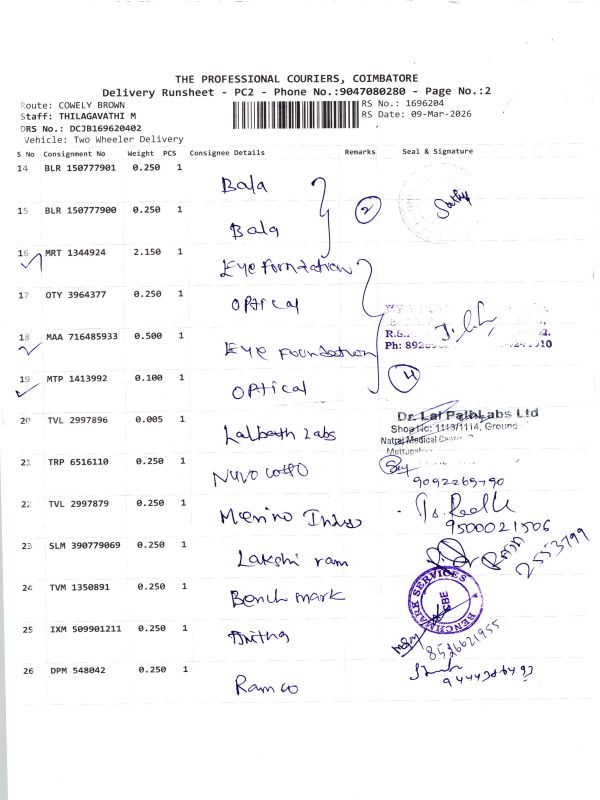 THE PROFESSIONAL COURIERS, COIMBATORE
Delivery Runsheet - PC2 - Phone No.:9047080280 - Page No.:2
Route: COWELY BROWN
RS No.: 1696204
Staff: THILAGAVATHI M
RS Date: 09-Mar-2026
DRS No.: DCJB169620402
Vehicle: Two Wheeler Delivery
S No Consignment No Weight PCS Consignee Details Remarks Seal & Signature
14 BLR 150777901 0.250 1
Bala
15 BLR 150777900 0.250 1
2
Bala
16 MRT 1344924 2.150 1
Eye Forntation
17 OTY 3964377 0.250 1
Optical
18 MAA 716485933 0.500 1
R.S.
Eye Foundation
Ph:
19 MTP 1413992 0.100 1
4
Optical
20 TVL 2997896 0.005 1
Dr. Lal PathLabs Ltd
Shop No: 1113/1114, Ground
Lalpath Labs
Natraj Medical Centre
21 TRP 6516110 0.250 1
Nuvo cotto
9092269790
22 TVL 2997879 0.250 1
Merino Indus
9500021506
23 SLM 390779069 0.250 1
2553799
Lakshi ram
24 TVM 1350891 0.250 1
BENCHMARK SERVICES
CBE
Bench mark
25 IXM 509901211 0.250 1
Anitha
8526621955
26 DPM 548042 0.250 1
Ramco